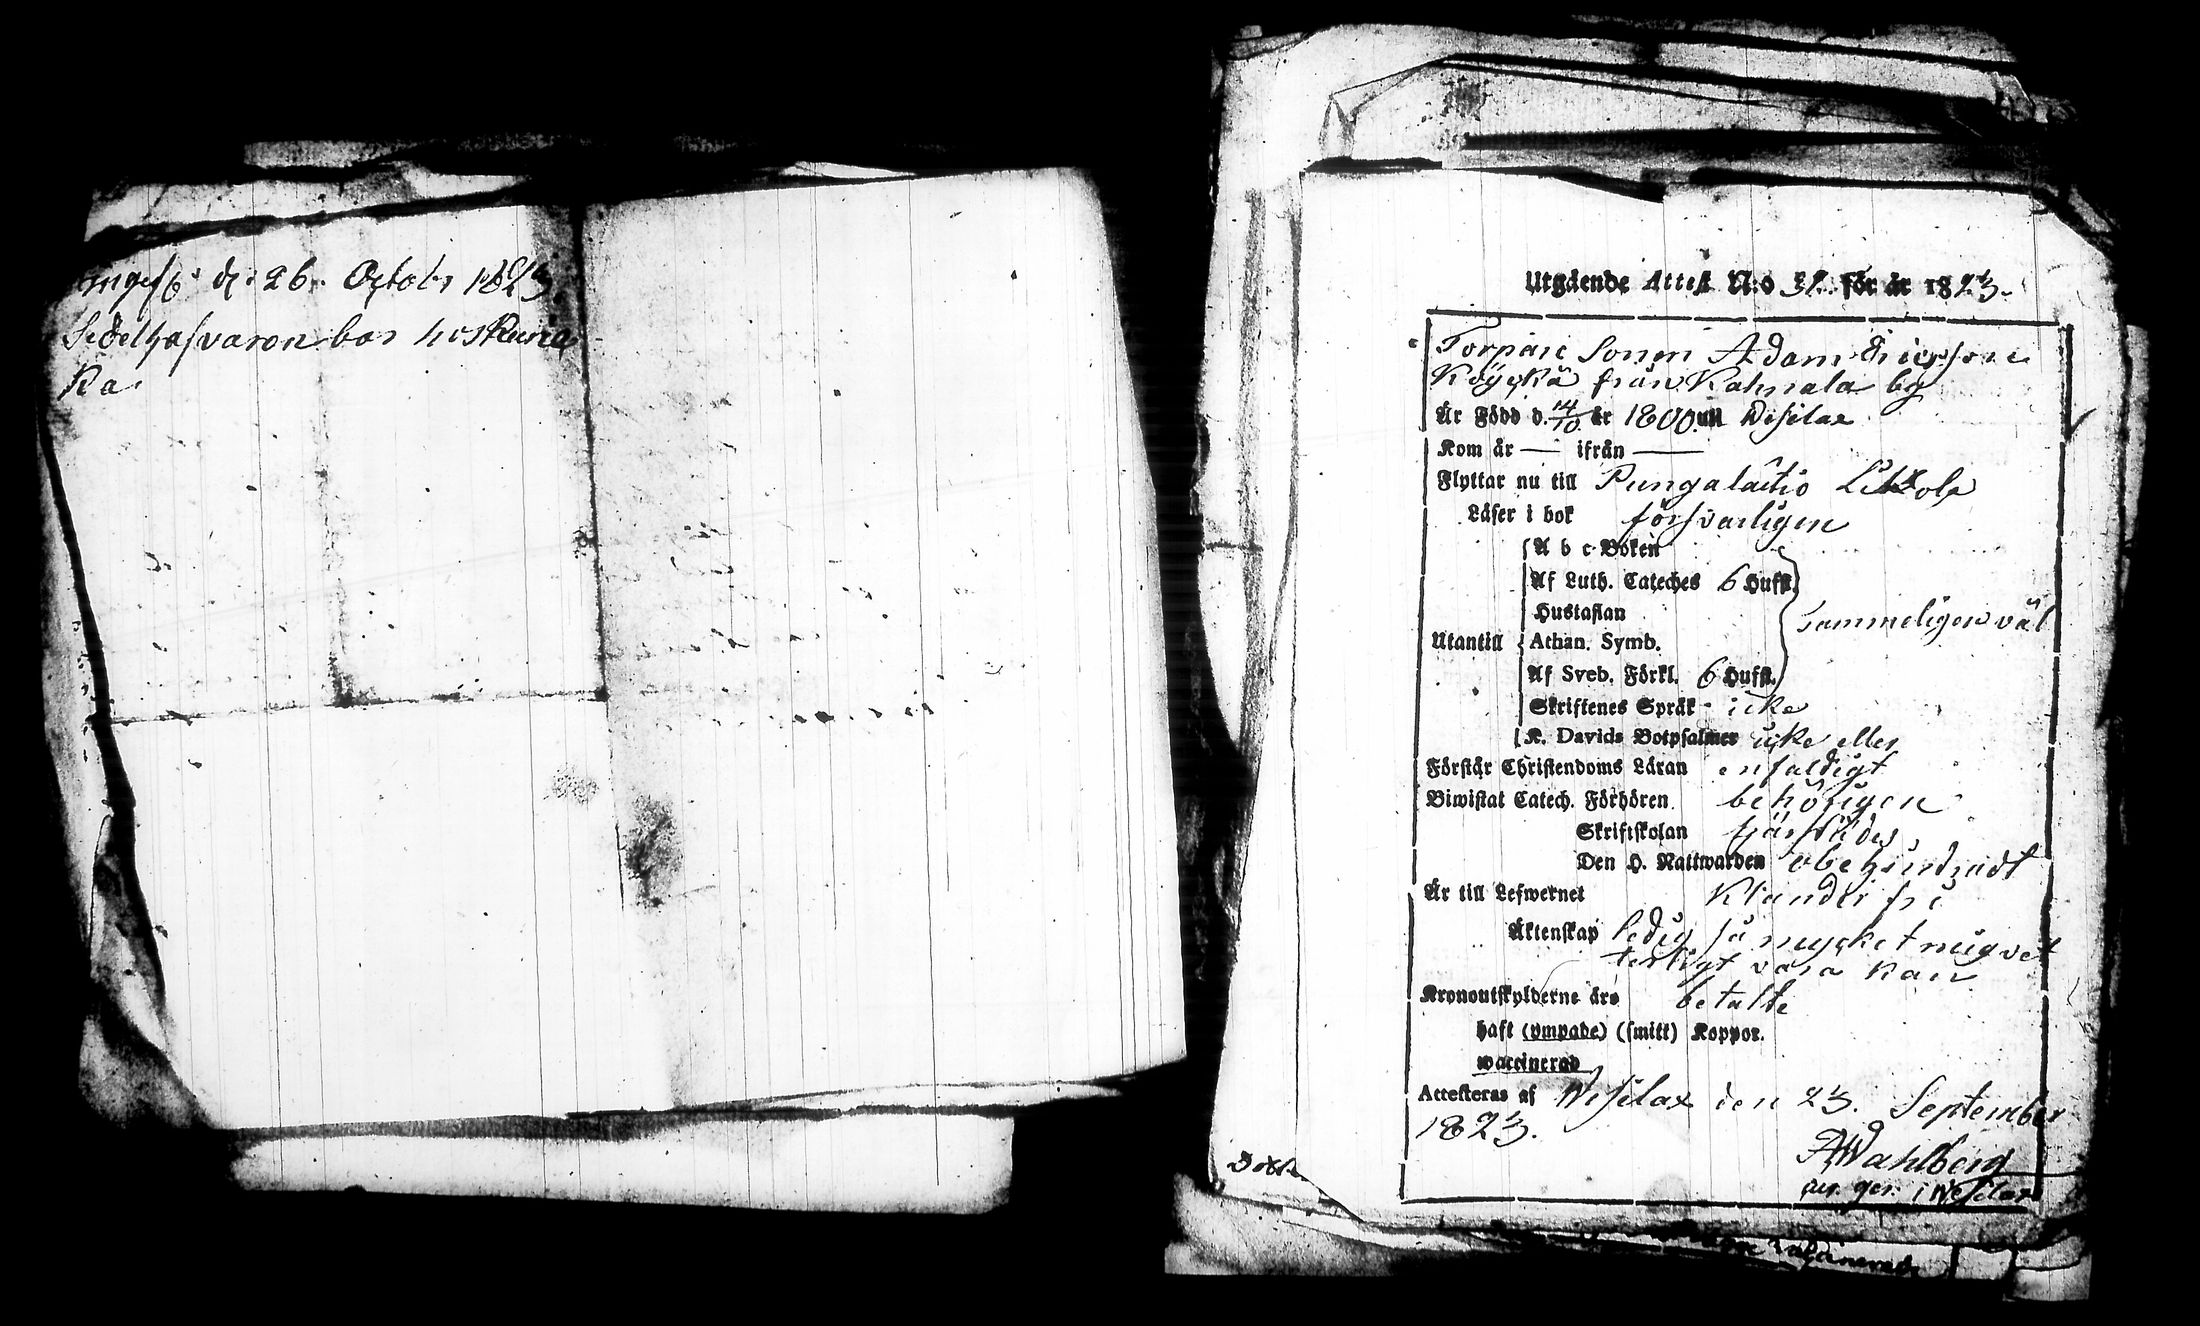 ingifs d. 26. Octobr 1823.
Sedelhafvaren bor hos Kuria
ka
Utgående Attest N:o 32. för år 1823.
Torpare Sonen Adam Ericsson
Köyckä från Kahnala by
Är Född d. 14/10. år 1800. uti Wesilax
Kom år — ifrån —
Flyttar nu till Pungalaitio Likola
Läser i bok försvarligen
A b c-Boken
Af Luth. Cateches 6 Hufst.
Hustaflan
sammeligen väl
Utantill Athan. Symb.
Af Sveb. Förkl. 6 Hufst.
Skriftenes Språk icke
K. Davids Botpsalmer icke eller
Förstår Christendoms Läran enfaldigt
Biwistat Catech. Förhören behörigen
Skriftskolan
Den H. Nattwarden obehindradt
Är till Lefwernet Klanderfri
Äktenskap ledig så mycket mig vet
terligt vara kan
Kronoutskylderne äro betalte
haft (ympade) (smitt) Koppor.
waccinerad
Attesteras af Wesilax den 23. September
1823.
A Wahlberg
i Wesilax